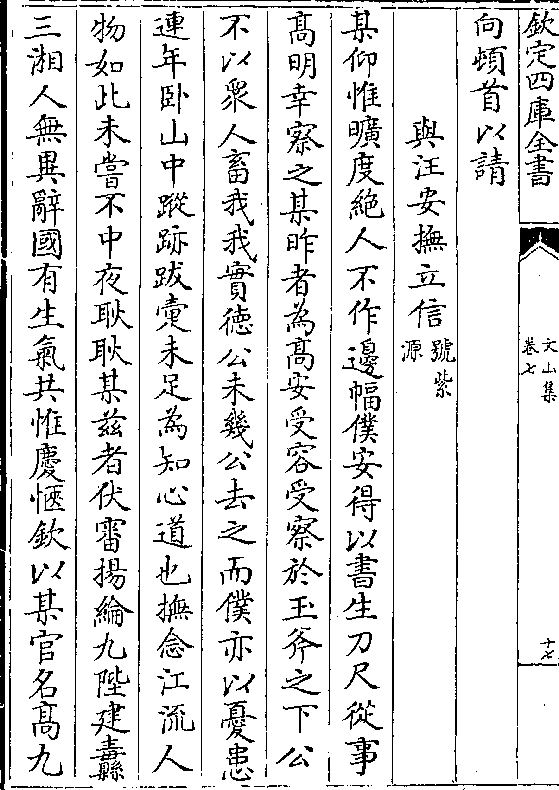 欽定四庫全書
文山集
卷七
十七
向頓首以請
與汪安撫立信
號紫
源
某仰惟曠度絶人不作邊幅僕安得以書生刀尺從事
髙明幸察之某昨者為髙安受容受察於玉斧之下公
不以衆人畜我我實徳公未幾公去之而僕亦以憂患
連年卧山中蹤跡跋疐未足為知心道也撫念江流人
物如此未嘗不中夜耿耿某兹者伏審揚綸九陛建纛
三湘人無異辭國有生氣共惟慶愜欽以某官名髙九